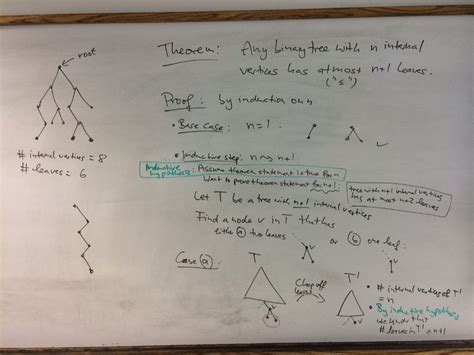 root
# internal vertices = 8
# leaves = 6
Theorem: Any binary tree with n internal
vertices has at most n+1 leaves.
("≤")
Proof: by induction on n
• Base case: n=1:
✓
• Inductive step: n → n+1
Inductive hypothesis: Assume theorem statement is true for n
Want to prove theorem statement for n+1: tree with n+1 internal vertices
has at most n+2 leaves
Let T be a tree with n+1 internal vertices
Find a node v in T that has
either (a) two leaves
v
or (b) one leaf:
v
Case (a):
T
v
Chop off
leaves
T'
v
• # internal vertices of T'
= n
• By inductive hypothesis
we know that
# leaves in T' ≤ n+1